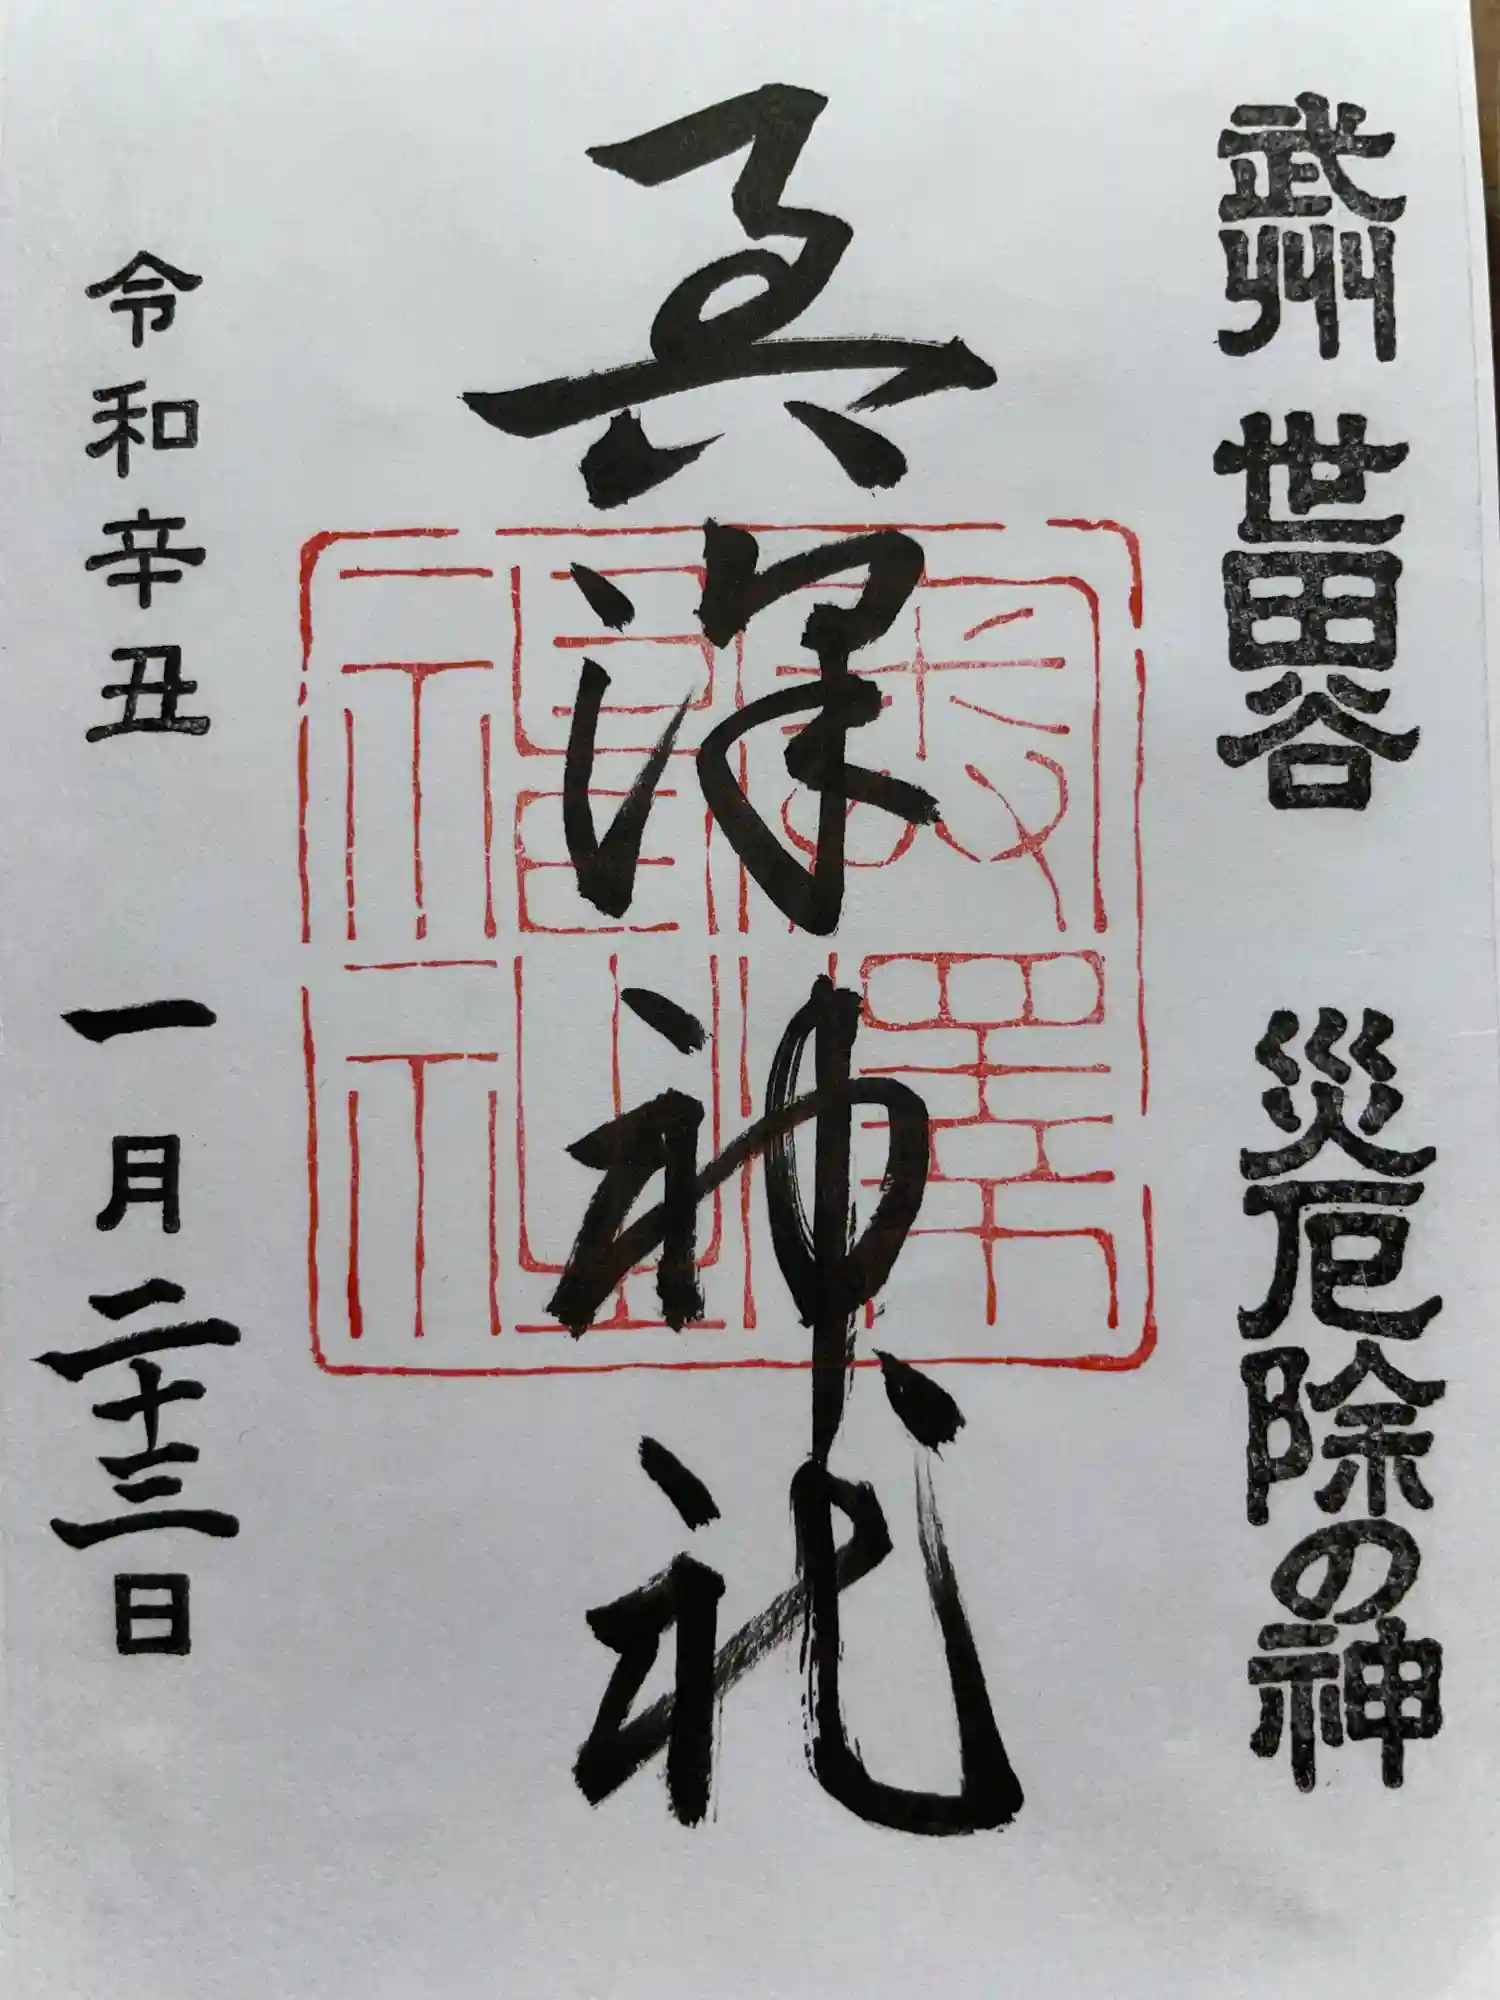 武州 世田谷 災厄除の神
奥澤神社
奥澤
神社
令和辛丑 一月二十三日